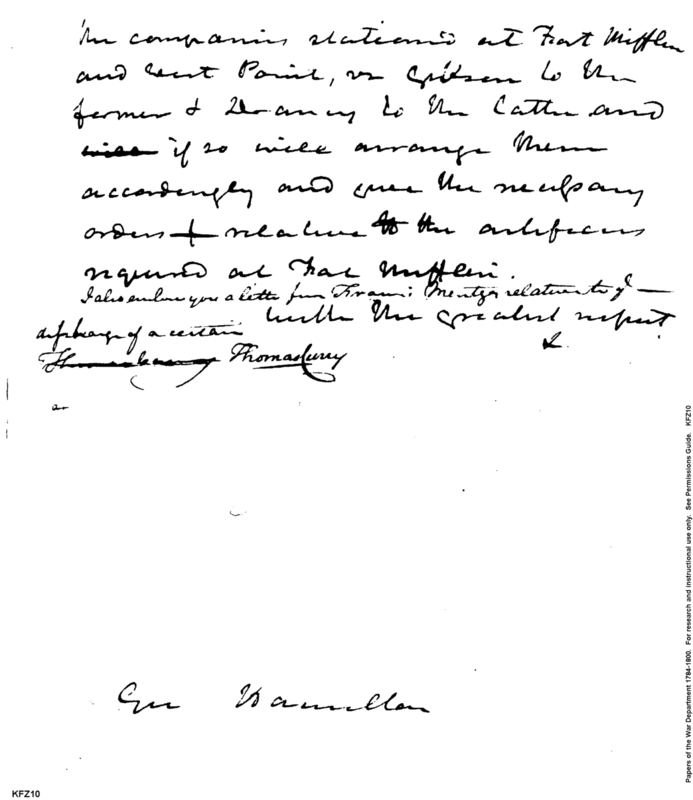 the companies stationed at Fort Mifflin
and West Point, vz Gibson to the
former & Drancy to the latter and
will if so will arrange them
accordingly and give the necessary
orders relative to the artificers
required at Fort Mifflin.
I also enclose you a letter from Francis Mentges relative to ye
discharge of a certain
with the greatest respect
&
Thomas Curry
Gen Hamilton
Papers of the War Department 1784-1800. For research and instructional use only. See Permissions Guide. KFZ10
KFZ10